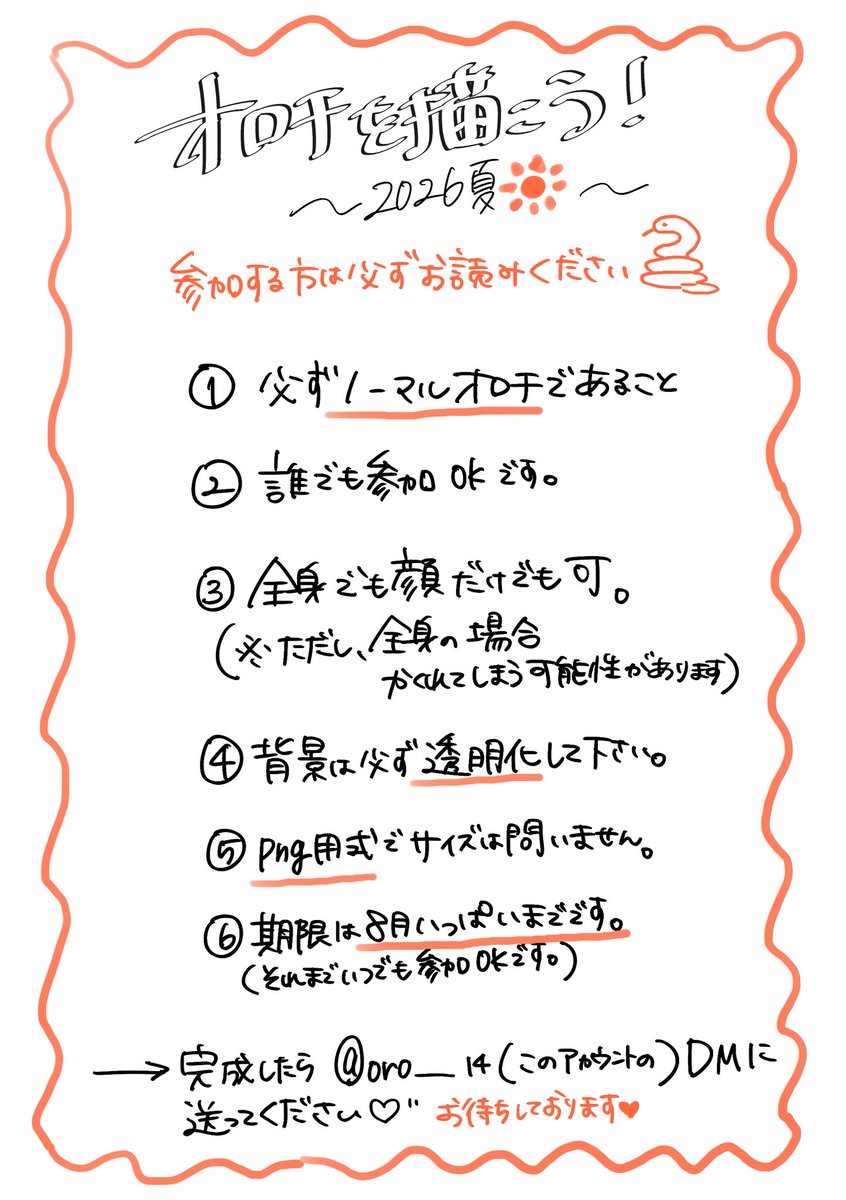 オロチを描こう!
〜2026夏〜
参加する方は必ずお読みください
① 必ずノーマルオロチであること
② 誰でも参加OKです。
③ 全身でも顔だけでも可。
(※ただし、全身の場合
かくれてしまう可能性があります)
④ 背景は必ず透明化して下さい。
⑤ png用式でサイズは問いません。
⑥ 期限は8月いっぱいまでです。
(それまでいつでも参加OKです。)
→ 完成したら @oro__14(このアカウントの)DMに
送ってください♡" お待ちしております♥